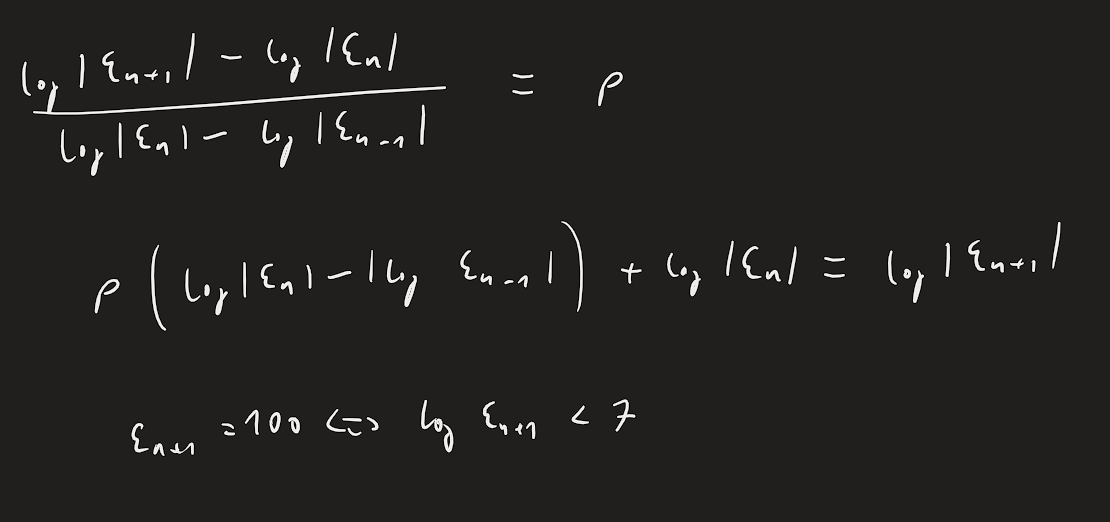 (log |ε_{n+1}| − log |ε_n|) / (log |ε_n| − log |ε_{n−1}|) = ρ
ρ (log |ε_n| − |log ε_{n−1}|) + log |ε_n| = log |ε_{n+1}|
ε_{n+1} = 100 <=> log ε_{n+1} < 7